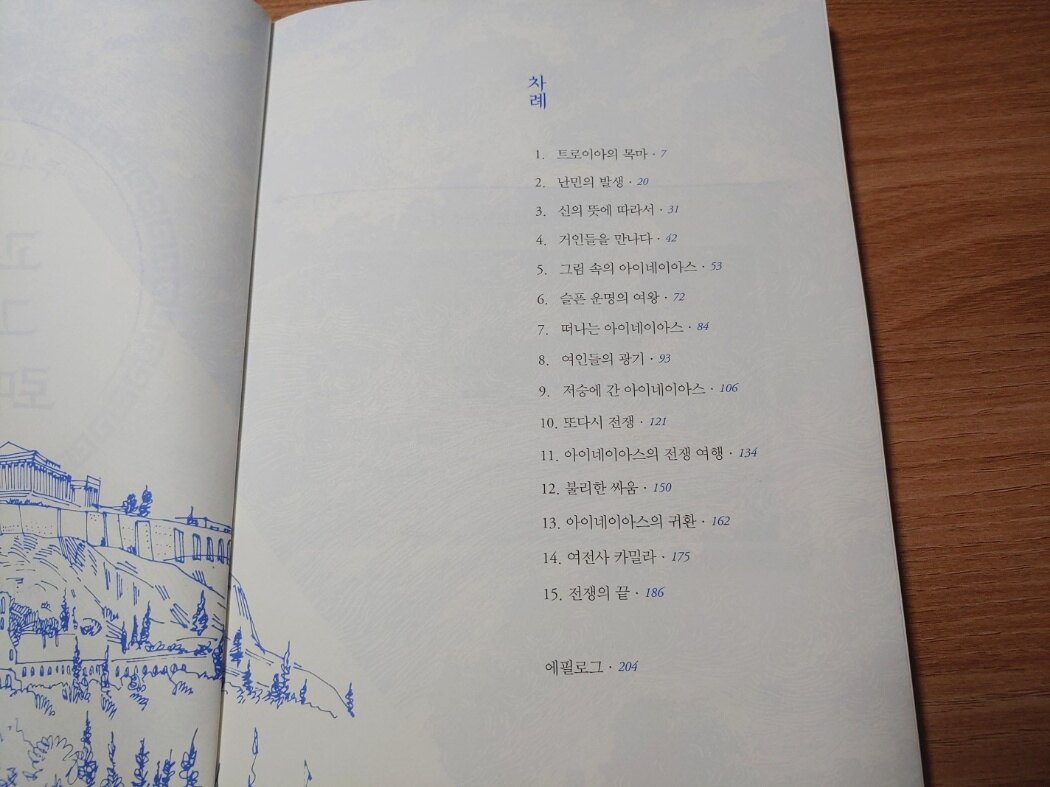 차
례
1. 트로이아의 목마 · 7
2. 난민의 발생 · 20
3. 신의 뜻에 따라서 · 31
4. 거인들을 만나다 · 42
5. 그림 속의 아이네이아스 · 53
6. 슬픈 운명의 여왕 · 72
7. 떠나는 아이네이아스 · 84
8. 여인들의 광기 · 93
9. 저승에 간 아이네이아스 · 106
10. 또다시 전쟁 · 121
11. 아이네이아스의 전쟁 여행 · 134
12. 불리한 싸움 · 150
13. 아이네이아스의 귀환 · 162
14. 여전사 카밀라 · 175
15. 전쟁의 끝 · 186
에필로그 · 204